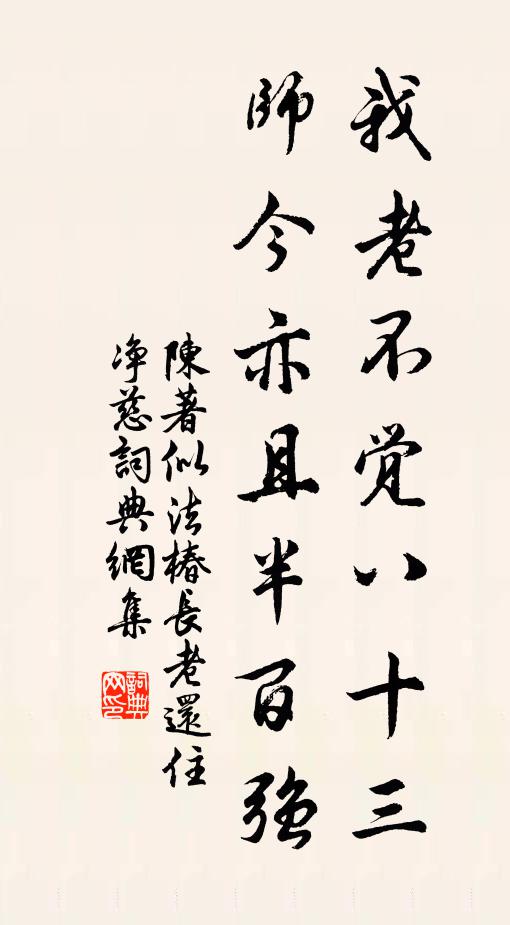 我老不觉八十三
師今亦且半百强
陳著似法椿長老還住
净慈詞典網集
詞典网印